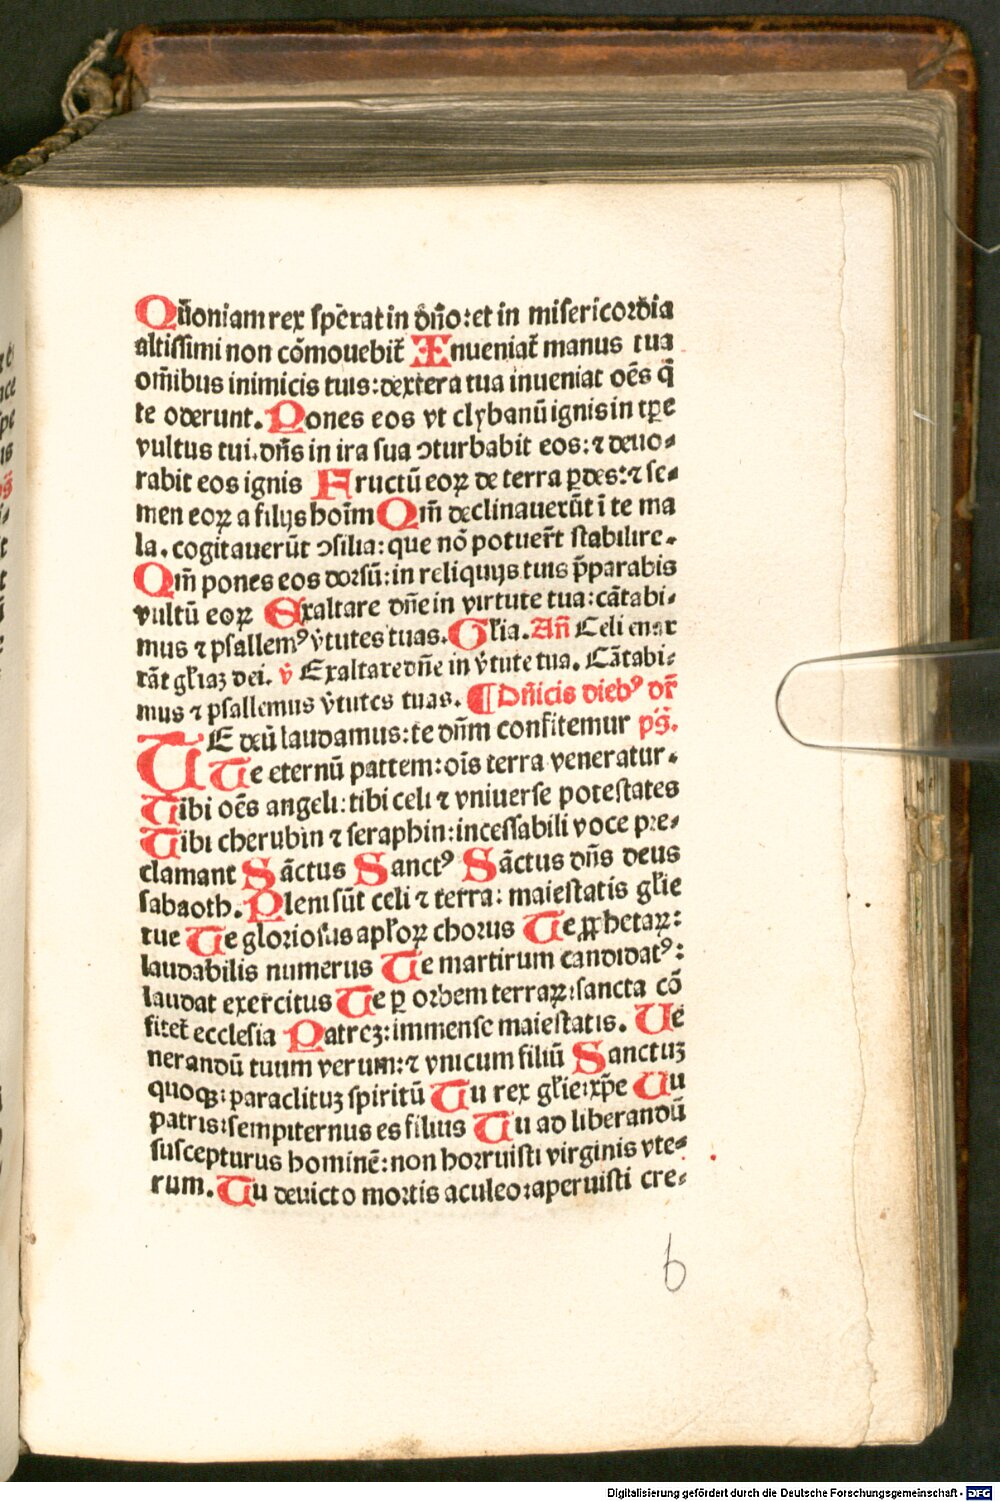 Qm̄oniam rex sp̄erat in dn̄o: et in misericordia
altissimi non cōmouebit̄ Inueniat̄ manus tua
om̄ibus inimicis tuis: dextera tua inueniat oēs q̄
te oderunt. Pones eos vt clybanū ignis in tp̄e
vultus tui. dn̄s in ira sua ↄturbabit eos: ⁊ deuo-
rabit eos ignis Fructū eoꝝ de terra ꝑdes: ⁊ se-
men eoꝝ a filijs hoīm Qm̄ declinauerūt ī te ma
la. cogitauerūt ↄsilia: que nō potuer̄t stabilire.
Qm̄ pones eos dorsū: in reliquijs tuis p̄parabis
vultū eoꝝ Exaltare dn̄e in virtute tua: cātabi-
mus ⁊ psallemꝰ v̄tutes tuas. Gl̄ia. An̄ Celi enar
rāt gl̄iaꝫ dei. v̄ Exaltare dn̄e in v̄tute tua. Cātabi-
mus ⁊ psallemus v̄tutes tuas. ¶ Dn̄icis diebꝰ dr̄
TE deū laudamus: te dn̄m confitemur ps̄.
Te eternū pattem: oīs terra veneratur.
Tibi oēs angeli: tibi celi ⁊ vniuerse potestates
Tibi cherubin ⁊ seraphin: incessabili voce pre-
clamant Sāctus Sanctꝰ Sāctus dn̄s deus
sabaoth. Pleni sūt celi ⁊ terra: maiestatis gl̄ie
tue Te gloriosus apl̄oꝝ chorus Te ꝓphetaꝝ:
laudabilis numerus Te martirum candidatꝰ:
laudat exercitus Te ꝑ orbem terraꝝ: sancta cō
fitet̄ ecclesia Patreꝫ: immense maiestatis. Ue
nerandū tuum verum: ⁊ vnicum filiū Sanctuꝫ
quoqꝫ: paraclituꝫ spiritū Tu rex gl̄ie: xp̄e Tu
patris: sempiternus es filius Tu ad liberandū
suscepturus hominē: non horruisti virginis vte-
rum. Tu deuicto mortis aculeo: aperuisti cre-
6
Digitalisierung gefördert durch die Deutsche Forschungsgemeinschaft - DFG